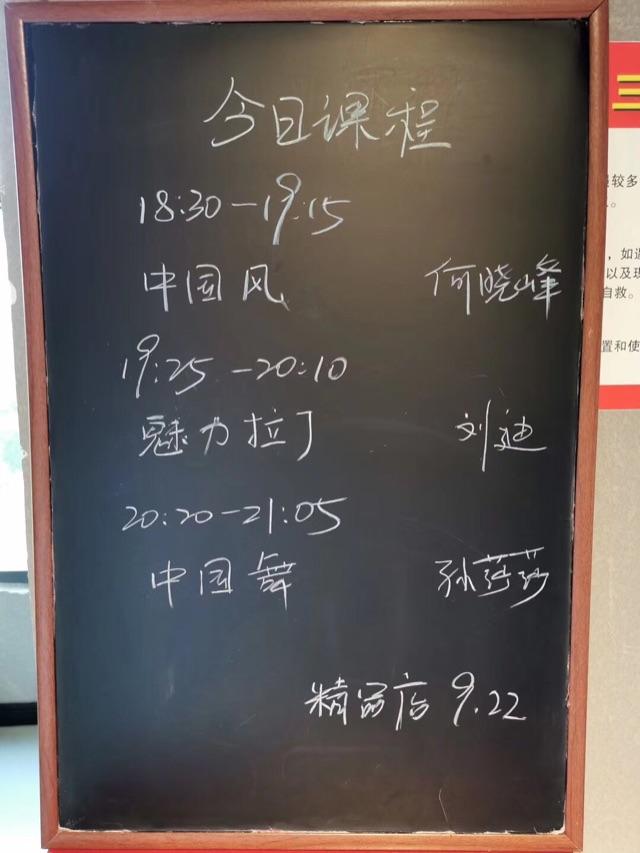 今日课程
18:30-19:15
中国风 何晓峰
19:25-20:10
魅力拉丁 刘迪
20:20-21:05
中国舞 孙莎莎
精品店 9.22
三
较多
，如遇
以及现
自救。
置和使